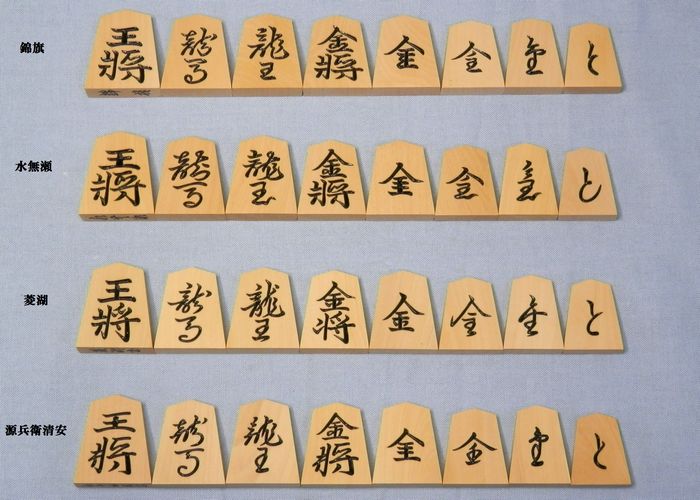 錦旗
王将 龍馬 龍王 金将 金 全 と
水無瀬
王将 龍馬 龍王 金将 金 全 と
菱湖
王将 龍馬 龍王 金将 金 全 と
源兵衛清安
王将 龍馬 龍王 金将 金 全 と